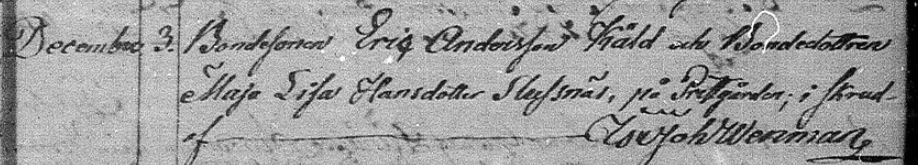 December 3. Bondesonen Eric Andersson Käld och Bondedottren
Maja Lisa Hansdotter Slussnäs, på Prestgården; i skrud
af Joh Wenman